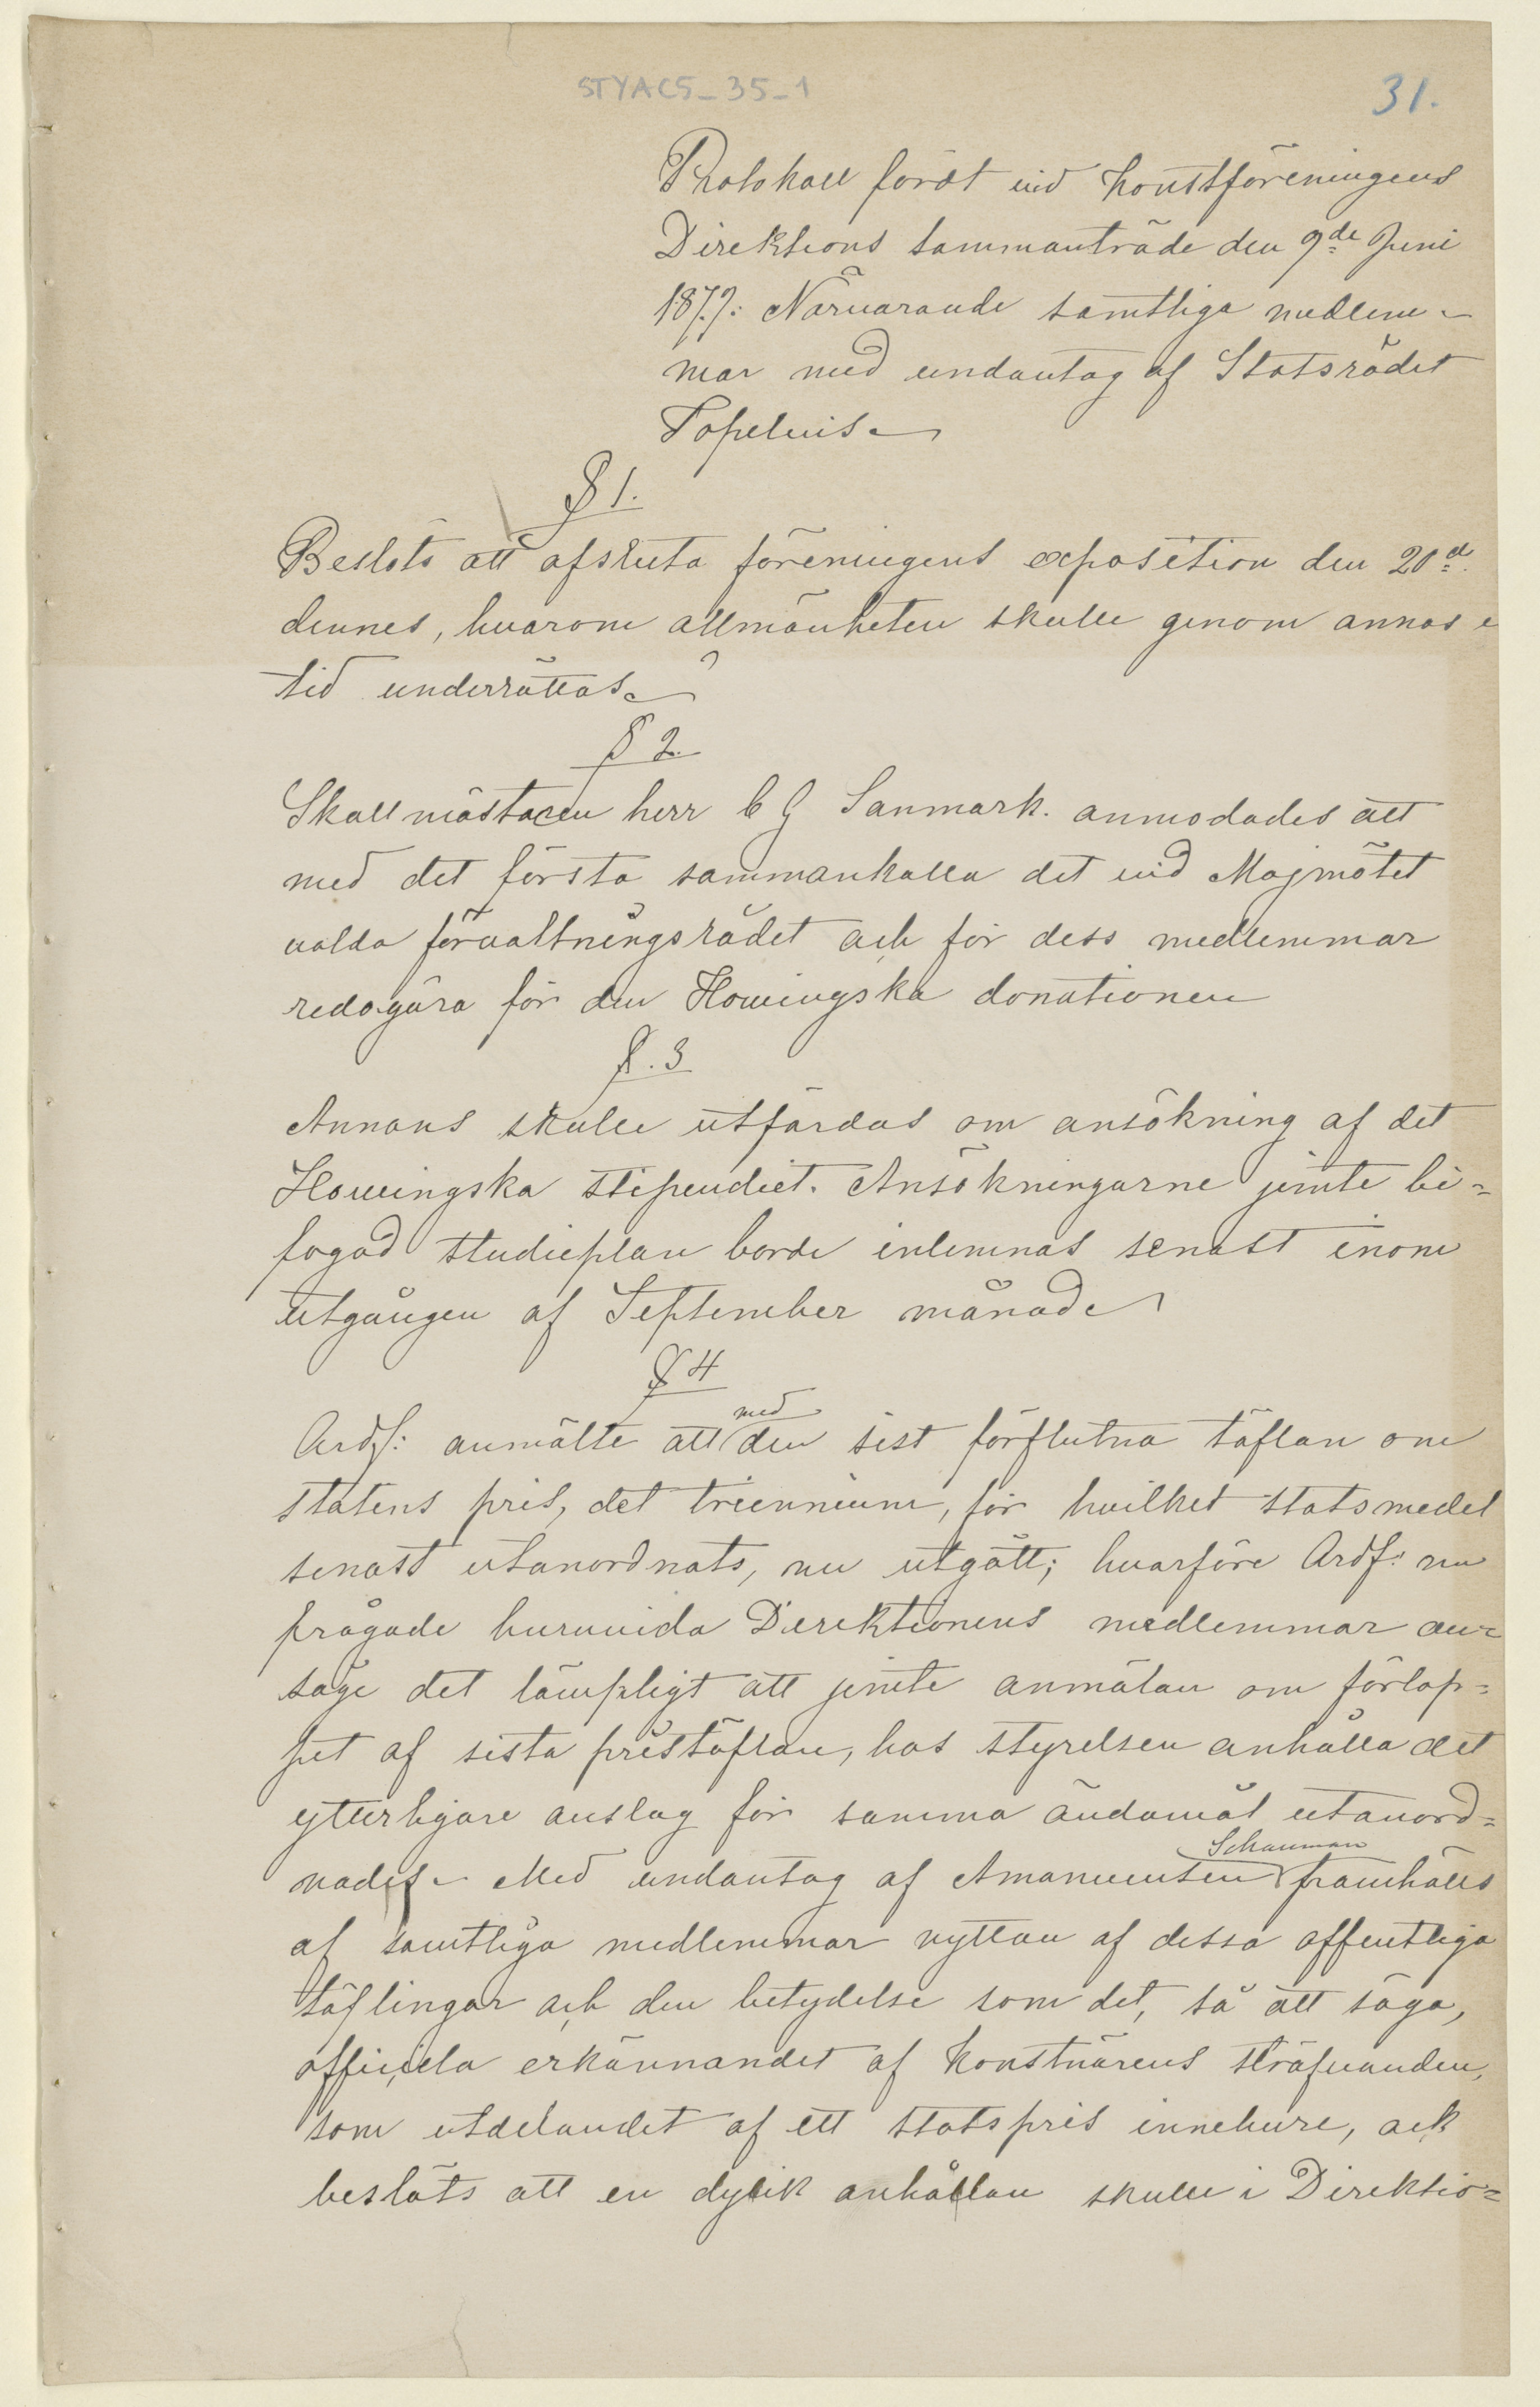 STYAC5_35_1
31.
Protokoll fördt vid Konstföreningens
Direktions sammanträde den 9de Juni
1877: Närvarande samtliga medlem-
mar med undantag af Statsrådet
Topelius.
§ 1.
Beslöts att afsluta föreningens exposition den 20d.
dennes, hvarom allmänheten skulle genom annos i
tid underrättas.
§ 2.
Skattmästaren herr C G Sanmark. anmodades att
med det första sammankalla det vid Majmötet
valda förvaltningsrådet och för dess medlemmar
redogöra för den Hovingska donationen
§. 3
Annons skulle utfärdas om ansökning af det
Hovingska stipendiet. Ansökningarne jemte bi=
fogad studieplan borde inlemnas senast inom
utgången af September månad
§ 4
Ordf: anmälte att med den sist förflutna täflan om
statens pris, det triennium, för hvilket statsmedel
senast utanordnats, nu utgått; hvarföre Ordf: nu
frågade huruvida Direktionens medlemmar an=
såge det lämpligt att jemte anmälan om förlop=
pet af sista pristäflan, hos styrelsen anhålla det
ytterligare anslag för samma ändamål utanord=
nades. Med undantag af Amanuensen Schauman framhölls
af samtliga medlemmar nyttan af dessa offentliga
täflingar och den betydelse som det, så att säga,
officiela erkännandet af konstnärens sträfvanden,
som utdelandet af ett statspris innebure, och
beslöts att en dylik anhållan skulle i Direktio=